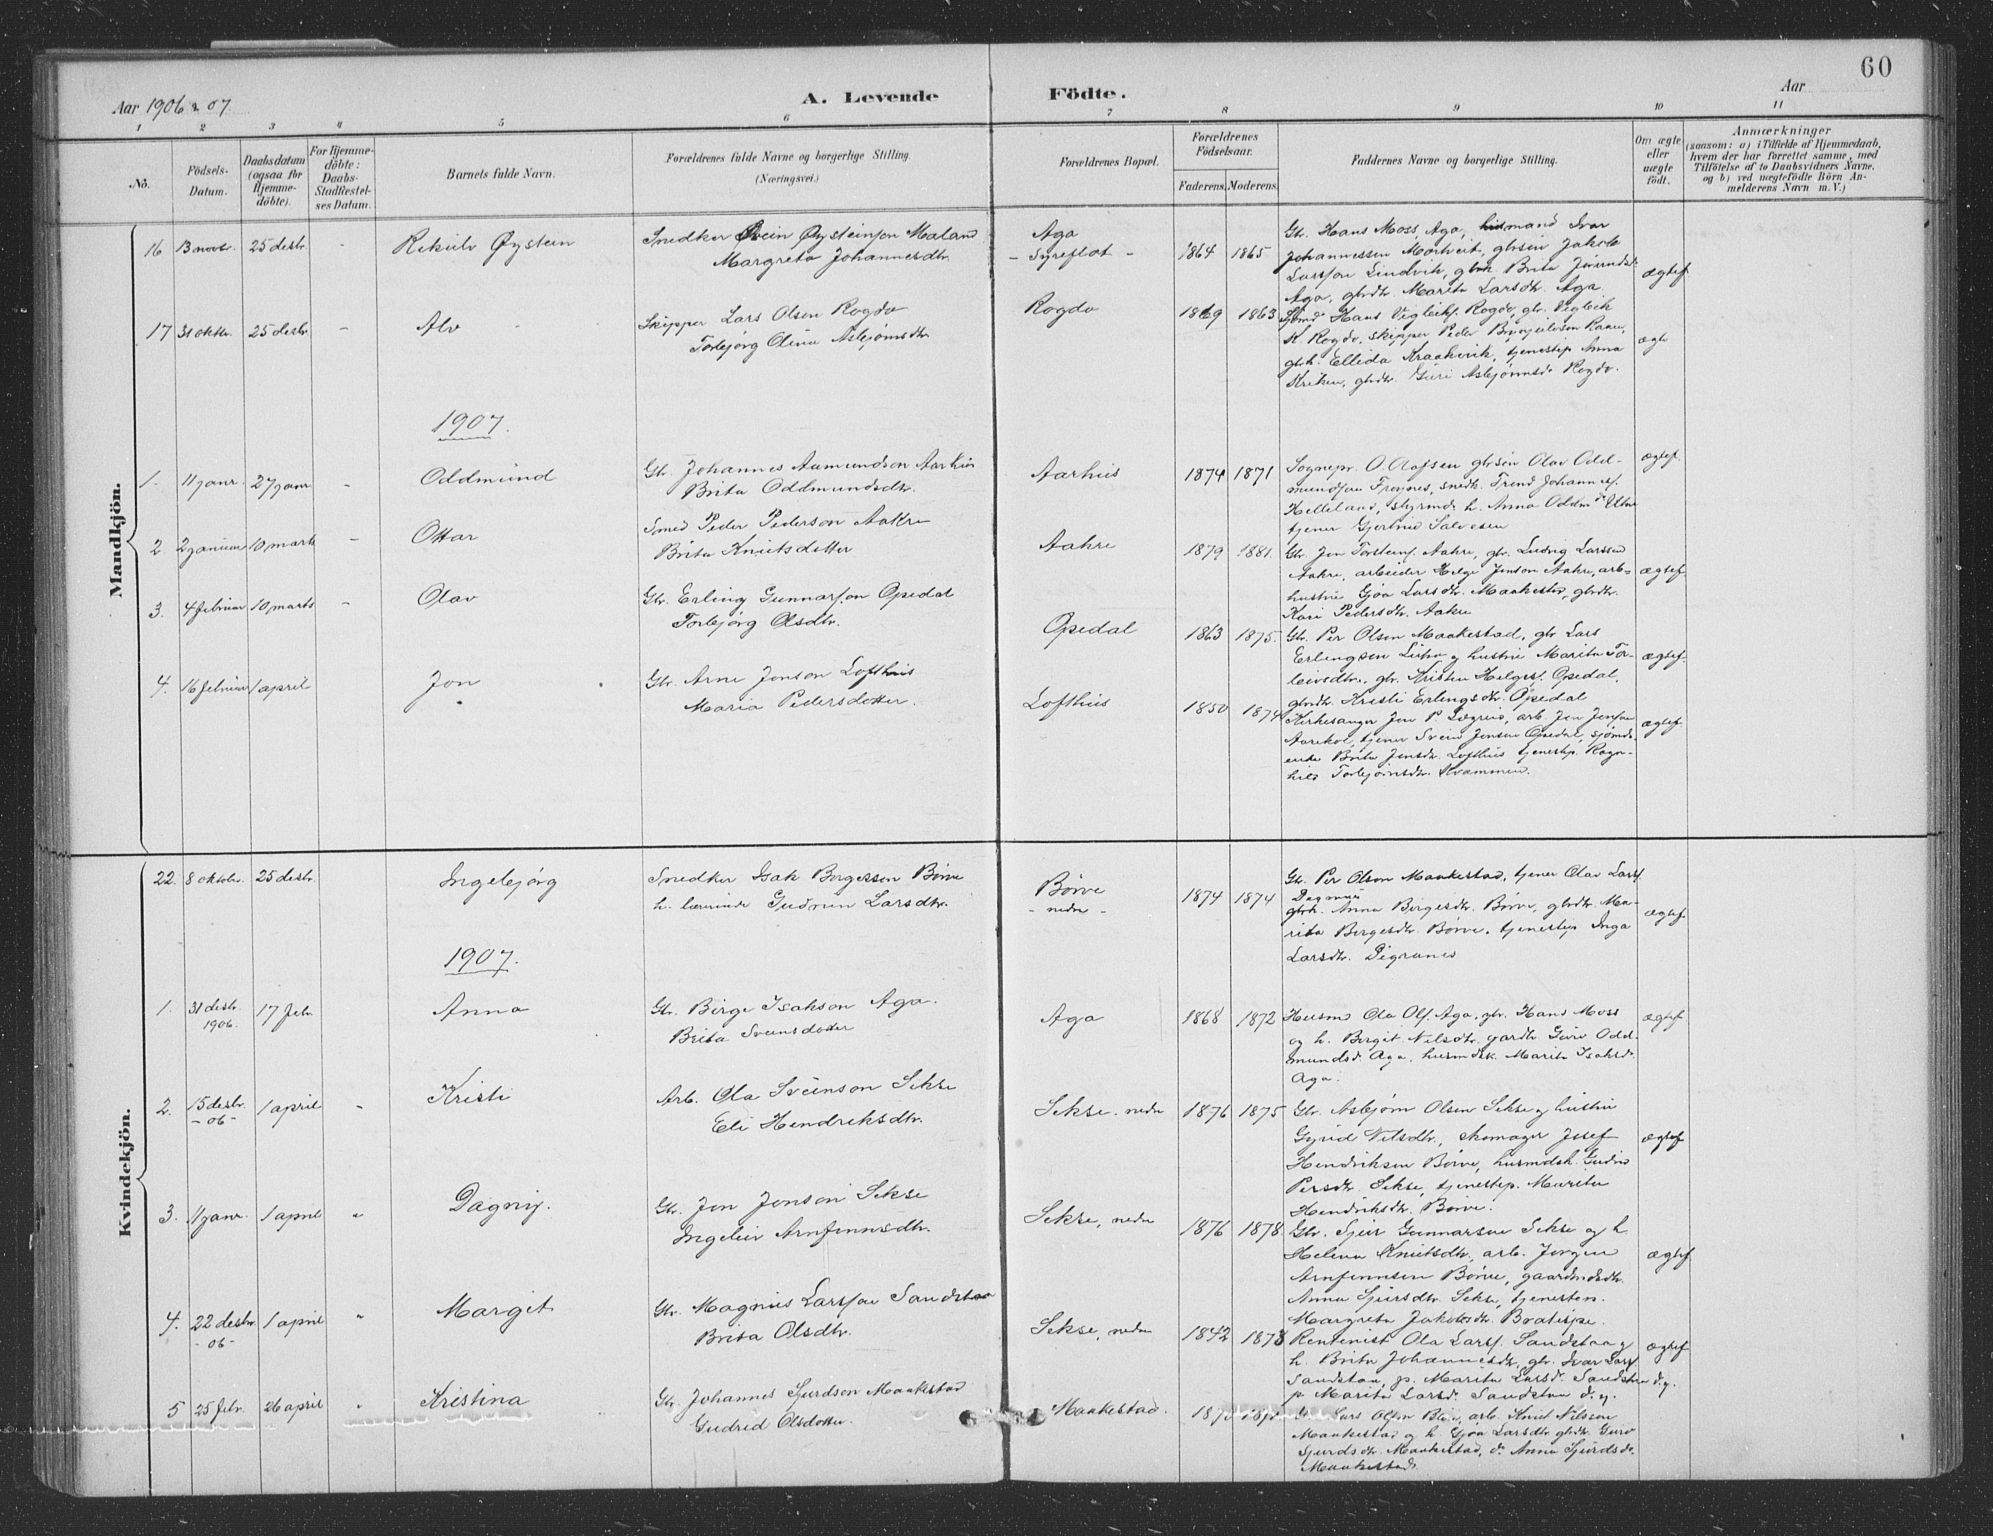 60
Aar 1906 & 07.
A. Levende Födte.
Aar
1 2 3 4 5 6 7 8 9 10 11
No.
Födsels-Datum.
Daabsdatum (ogsaa for Hjemme-döbte).
For Hjemme-döbte: Daabs-Stadfestel-ses Datum.
Barnets fulde Navn.
Forældrenes fulde Navne og borgerlige Stilling. (Næringsvei.)
Forældrenes Bopæl.
Forældrenes Födselsaar.
Faderens. Moderens.
Faddernes Navne og borgerlige Stilling.
Om ægte eller uægte födt.
Anmærkninger
(saasom: a) i Tilfælde af Hjemmedaab,
hvem der har forrettet samme, med
Tilföielse af to Daabsvidners Navne.
og b) ved uægtefödte Börn An-
melderens Navn m. V.)
Mandkjön.
16 13 novbr. 25 desbr. - Rikulv Øystein
Snedker Svein Øysteinson Maland
Margreta Johannesdtr.
Aga
- Syreflot -
1864 1865
Gbr. Hans Moss Aga, husmand Ivar
Johannessen Mortveit, gbrsøn Jakob
Larsson Lindvik, gbrk. Brita
Aga, gbrdtr. Marita Larsdtr. Aga.
ægtef.
17 31 oktbr. 25 desbr. - Alv
Skipper Lars Olsen Rogdo
Torbjørg Olina Asbjørnsdtr.
Rogdo
1869 1863
Hans Vigleiks. Rogdo, gbr. Vigleik
K. Rogdo, skipper Peder
gbrk. Ellida Kraakevik, tjenestep. Anna
gbrdtr. Guri Asbjørnsd. Rogdo.
ægte
1907.
1. 11 janr. 27 janr. - Oddmund
Gbr. Johannes Aamundson Aarhus
Brita Oddmundsdtr.
Aarhus
1874 1871
Sognepr. O. Olafsen gbrsøn Olav Odd-
mundson Freynes, snedk. Trond Johanness.
Helleland, styrmds. h. Anna Oddm.d. Utne
tjener Gjertrud Salvesen
ægtef.
2 2 januar 10 marts - Ottar
Smed Peder Pederson Aakre
Brita Knutsdotter
Aakre
1879 1881.
Gbr. Jon Torsteins. Aakre, gbr. Ludvig Larssen
Aakre, arbeider Helge Jonson Aakre, arb-
hustru Gjøa Larsdtr. Maakestad, gbrdtr.
Kari Pedersdtr. Aakre
ægtef.
3. 4 februar 10 marts - Olav
Gbr. Erling Gunnarson Opedal
Torbjørg Olsdtr.
Opedal
1863 1875.
Gbr. Per Olsen Maakestad, gbr. Lars
Erlingsen Lupo og hustru Marita Tor-
leivsdtr., gbr. Kristen Helges. Opedal,
gbrdtr. Kristi Erlingsdtr. Opedal
ægtef.
4. 16 februar 1 april Jon
Gbr. Arne Jonson Lofthus
Maria Pedersdotter.
Lofthus
1850 1874
Kirkesanger Jon P. Lægreid, arb. Jon Jonson
Aarekol, tjener Svein Jonson Opedal, sjømds-
enke Brita Jonsdtr. Lofthus tjenestep. Ragn-
hild Torbjørnsdtr. Kvammen.
ægtef.
Kvindekjön.
22. 8 oktobr. 25 desbr. Ingebjørg
Snedker Isak Borgesson Børve
h. lærerinde Gudrun Larsdtr.
Børve
- nedre -
1874 1874
Gbr. Per Olson Maakestad, tjener Olav Larss.
Digranes
gbrk. Anna Birgesdtr. Børve, gbrdtr. Ma-
rita Bergesdtr. Børve, tjenestep. Inga
Larsdtr. Digranes
ægtef.
1907.
1. 31 desbr. 1906. 17 febr. Anna
Gbr. Birge Isakson Aga.
Brita Svensdotter
Aga
1868 1872
Husmd. Ola Ols. Aga, gbr. Hans Moss
og h. Birgit Nilsdtr. gardtr. Guro Odd-
mundsd. Aga, husmdsk. Marita Isaksd.
Aga.
ægtef.
2. 15 desbr. -06- 1 april - Kristi
Arb. Ola Sveinson Sekse
Eli Hendriksdtr.
Sekse, nedre
1876 1875
Gbr. Asbjørn Olsen Sekse og hustru
Gyrid Nilsdtr., skomager Josef
Hendriksen Børve, husmdsk. Gudrid
Persdtr. Sekse, tjenestep. Marita
Hendriksdtr. Børve.
ægtef
3. 11 janr. 1 april " Dagny.
Gbr. Jon Jonson Sekse
Ingeleiv Arnfinnsdtr.
Sekse, nedre
1876 1878.
Gbr. Sjur Gunnarson Sekse og h.
Helena Knutsdtr., arb. Jørgen
Arnfinnsen Børve, gaardmdsdtr.
Anna Sjursdtr. Sekse, tjenestep.
Margreta Jakobsdtr. Bratespe.
ægtef
4. 22 desbr. -06- 1 april " Margit
Gbr. Magnus Larsson Sandstaa
Brita Olsdtr.
Sekse, nedre
1842 1873
Rentenist Ola Larss. Sandstaa og
h. Brita Johannesdtr, gbr. Ivar Larss.
Sandstaa, p. Marita Larsd. Sandstaa d. y.
p. Marita Larsd. Sandstaa d. y.
ægtef.
5 25 febr. 26 april " Kristina
Gbr. Johannes Sjurdson Maakestad
Gudrid Olsdotter.
Maakestad.
Lars Olsen arb. Knut Nilsson
Maakestad og h. Gjøa Larsdtr gbrdtr. Guro
Sjurdsdtr. Maakestad, d. Anna Sjurdsd.
Maakestad.